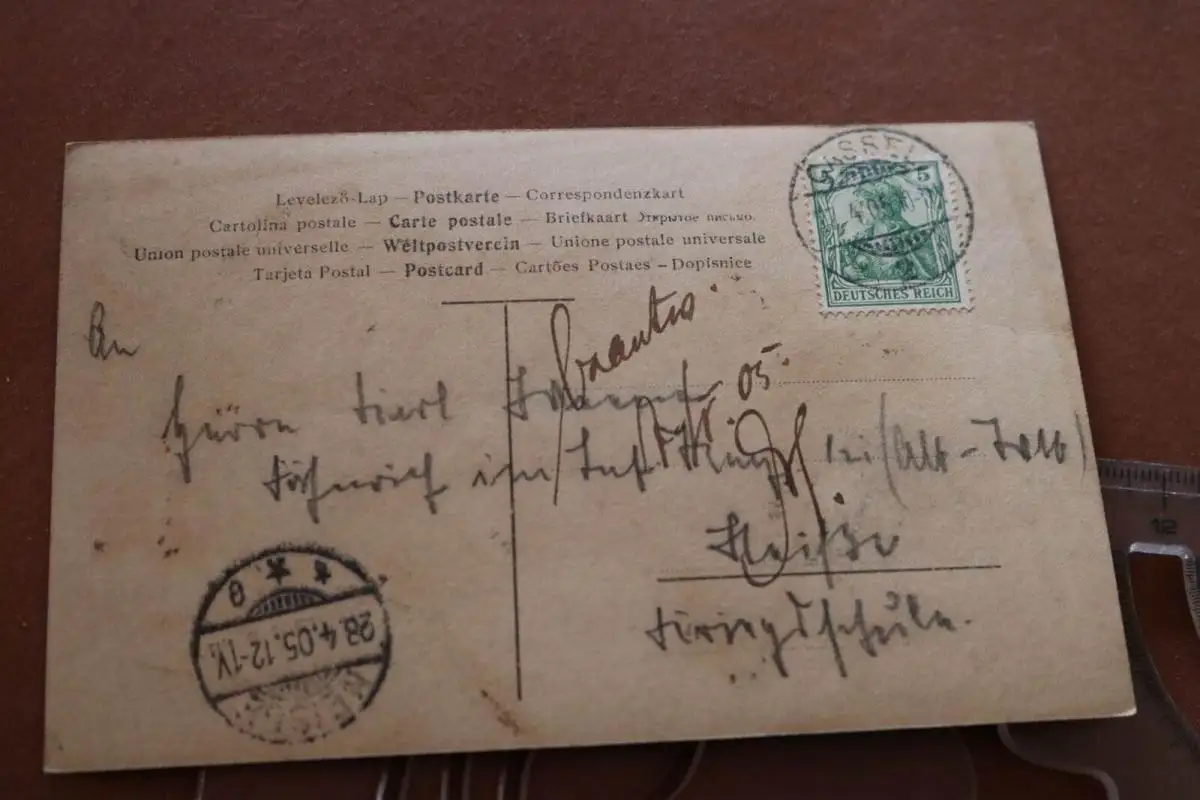 Levelező-Lap — Postkarte — Correspondenzkart
Cartolina postale — Carte postale — Briefkaart Открытое письмо.
Union postale universelle — Weltpostverein — Unione postale universale
Tarjeta Postal — Postcard — Cartões Postaes – Dopisnice
CASSEL
5
DEUTSCHES REICH
An
Herrn Karl
05.
Fähnrich im Inf
bei (Alt-
Neiße
Kriegsschule.
28.4.05.12-1V.
12